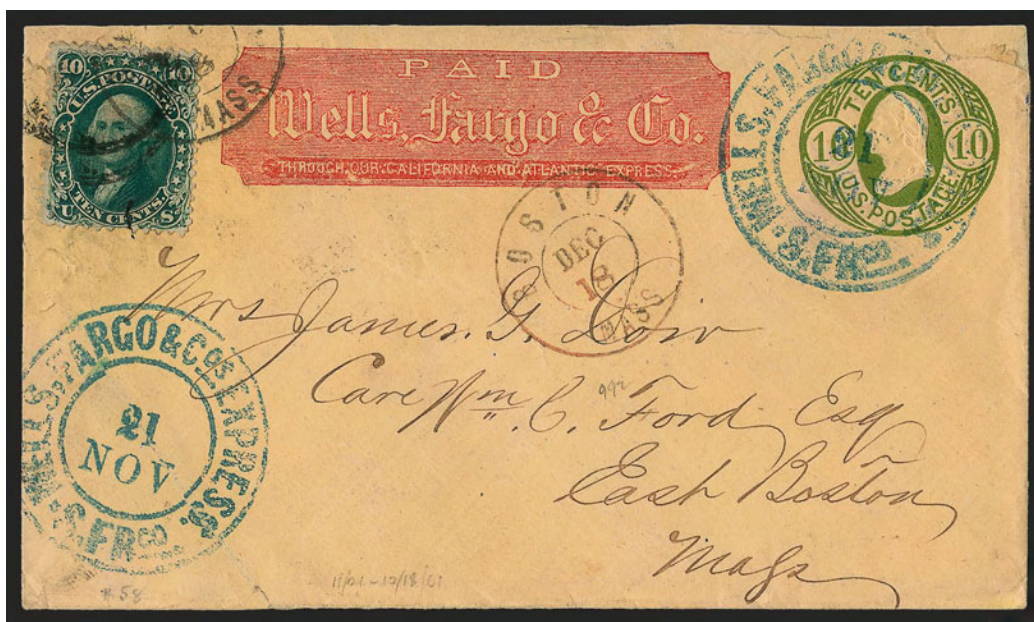 10 U.S. POSTAGE 10
U TEN CENTS. S
MASS
PAID
Wells, Fargo & Co.
THROUGH OUR CALIFORNIA AND ATLANTIC EXPRESS.
WELLS, FARGO &
21
S. FRCO.
TEN CENTS
10 10
U.S. POSTAGE
BOSTON
DEC
18
MASS
Mrs James. G. Dow
Care Wm. C. Ford Esq
992
East Boston
Mass
WELLS, FARGO & COS EXPRESS.
21
NOV
S. FRCO
11/21-12/18/61
# 58